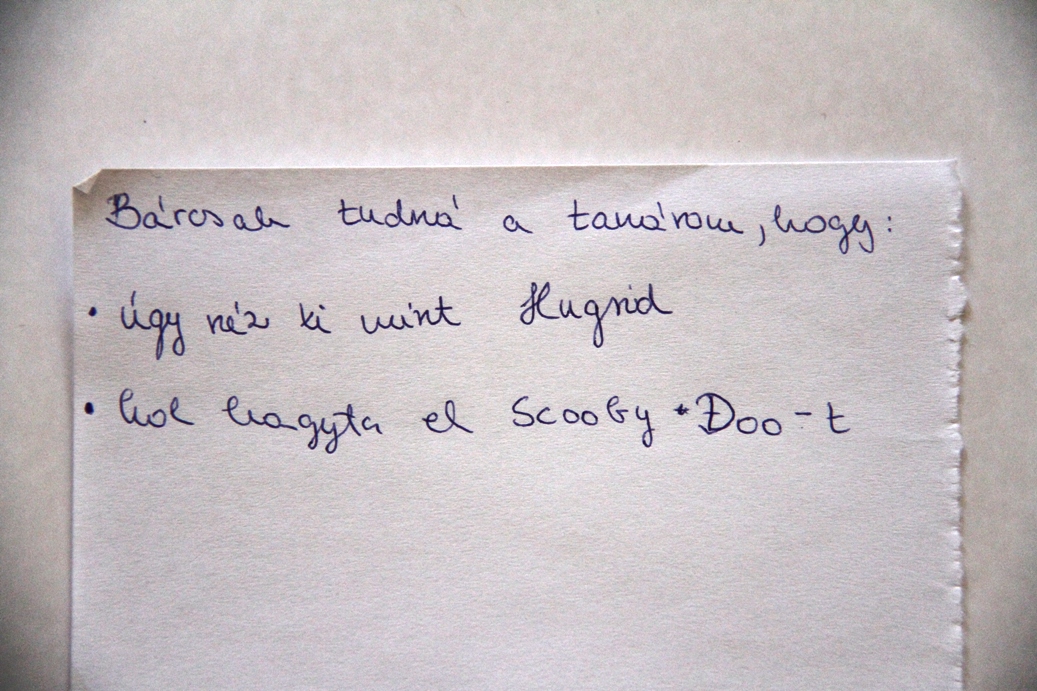 Bárcsak tudná a tanárom, hogy:
• Úgy néz ki mint Hugrid
• hol hagyta el Scooby-Doo-t